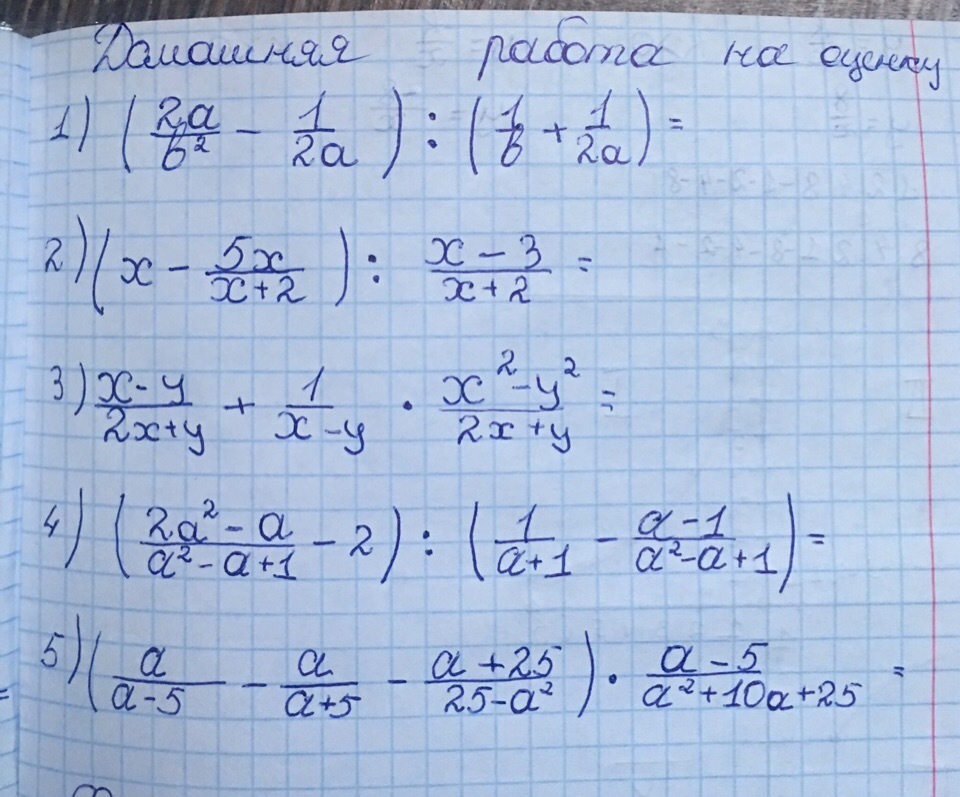 Домашняя работа на оценку
1) (2a/b² - 1/2a) : (1/b + 1/2a) =
2) (x - 5x/x+2) : x-3/x+2 =
3) x-y/2x+y + 1/x-y · x²-y²/2x+y =
4) (2a²-a/a²-a+1 - 2) : (1/a+1 - a-1/a²-a+1) =
5) (a/a-5 - a/a+5 - a+25/25-a²) · a-5/a²+10a+25 =